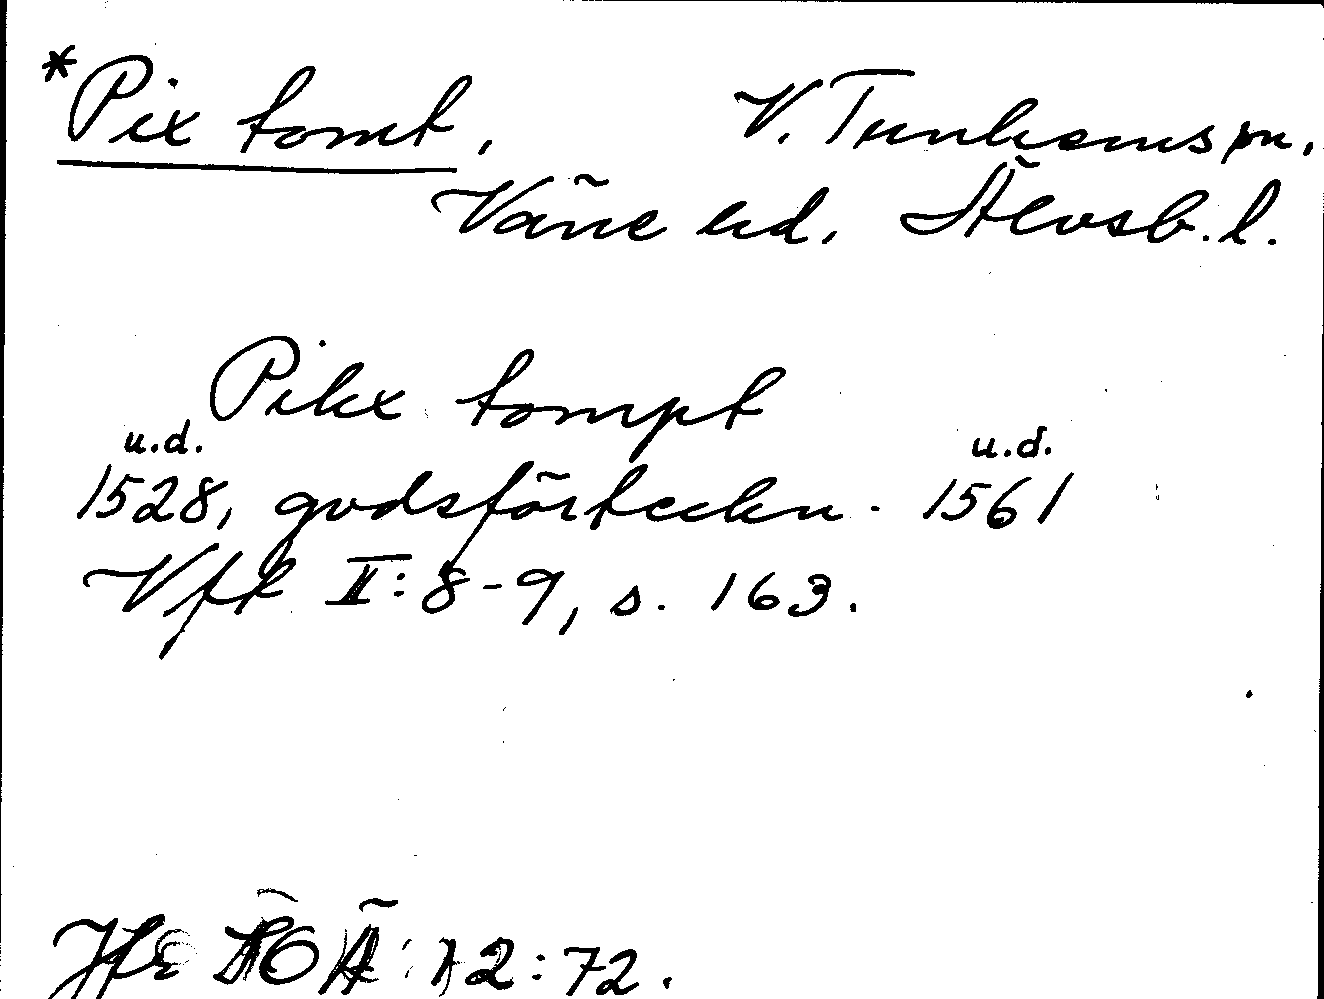 *Pix tomt, V. Tunhems sn.
Väne hd. Älvsb. l.
Pikx tompt
u.d. u.d.
1528, godsförteckn. 1561
Vfk II: 8-9, s. 163.
Jfr SOÄ 12:72.